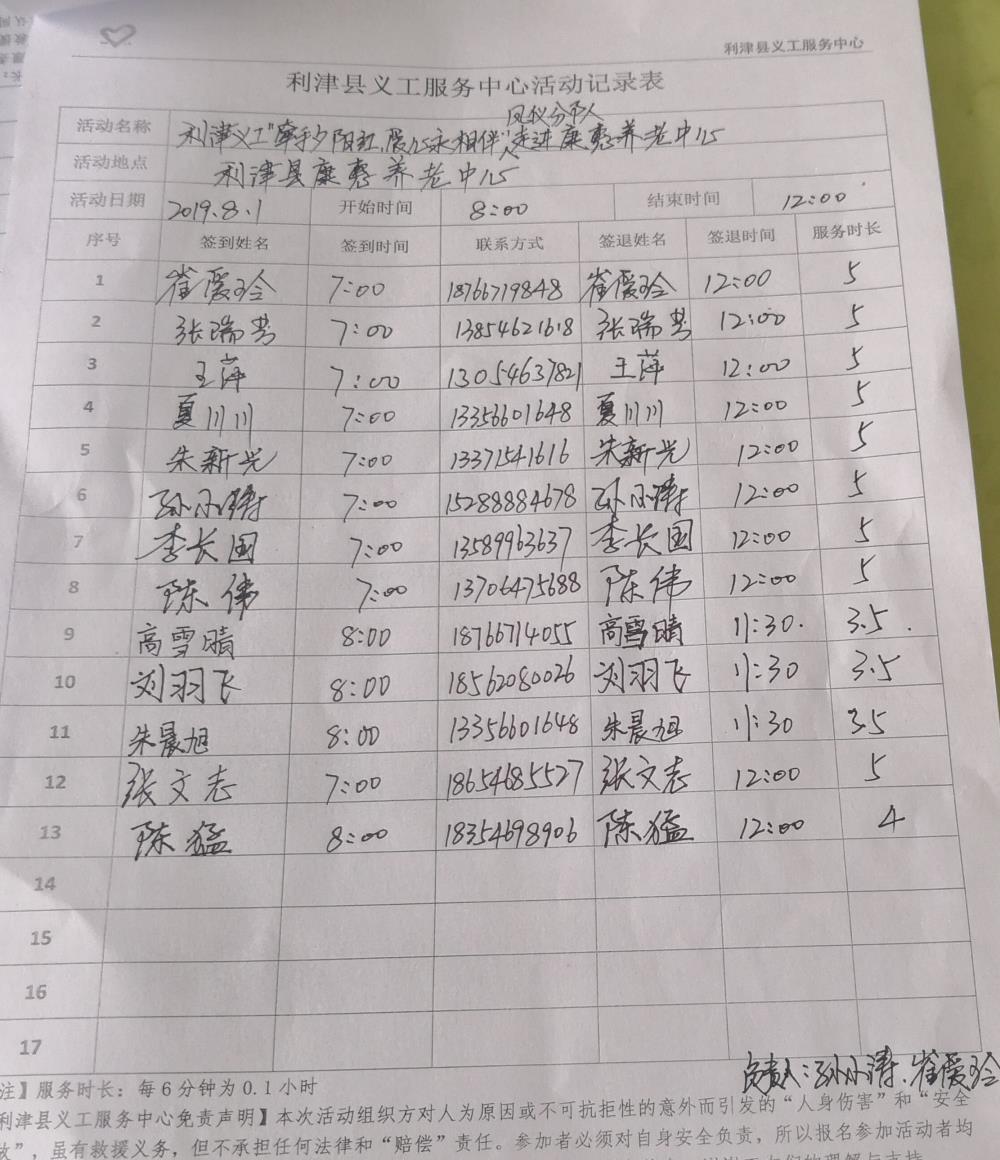 利津县义工服务中心
利津县义工服务中心活动记录表
活动名称 利津义工"牵手夕阳红,爱心永相伴"走进康惠养老中心
活动地点 利津县康惠养老中心
活动日期 2019.8.1 开始时间 8:00 结束时间 12:00
序号 签到姓名 签到时间 联系方式 签退姓名 签退时间 服务时长
1 崔爱玲 7:00 18766719848 崔爱玲 12:00 5
2 张瑞芳 7:00 13854621618 张瑞芳 12:00 5
3 王萍 7:00 13054637821 王萍 12:00 5
4 夏川川 7:00 13356601648 夏川川 12:00 5
5 朱新光 7:00 13371541616 朱新光 12:00 5
6 孙小涛 7:00 15288884678 孙小涛 12:00 5
7 李长国 7:00 13589963637 李长国 12:00 5
8 陈伟 7:00 13706475688 陈伟 12:00 5
9 高雪晴 8:00 18766714055 高雪晴 11:30. 3.5.
10 刘羽飞 8:00 18562080026 刘羽飞 11:30 3.5
11 朱晨旭 8:00 13356601648 朱晨旭 11:30 3.5
12 张文志 7:00 18654685527 张文志 12:00 5
13 陈猛 8:00 18354698906 陈猛 12:00 4
14
15
16
17
负责人:孙小涛、崔爱玲
注】服务时长:每6分钟为0.1小时
利津县义工服务中心免责声明】本次活动组织方对人为原因或不可抗拒性的意外而引发的“人身伤害”和“安全
故”,虽有救援义务,但不承担任何法律和“赔偿”责任。参加者必须对自身安全负责,所以报名参加活动者均